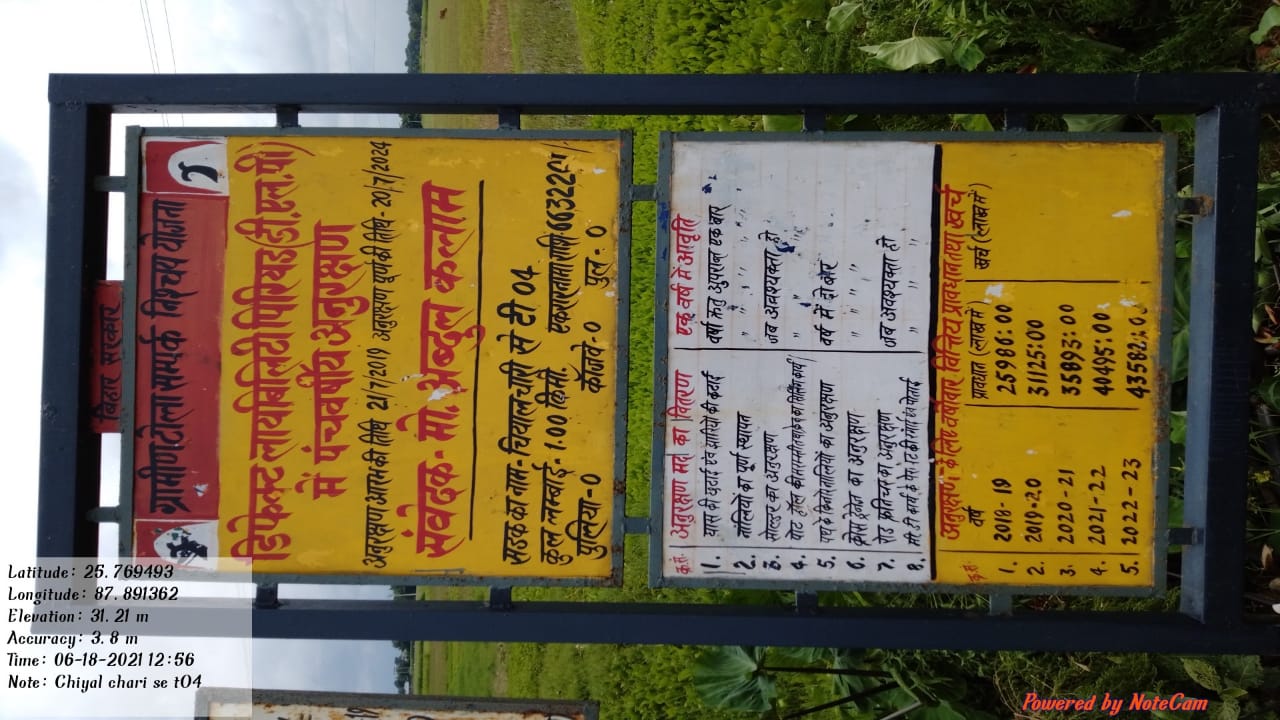 बिहार सरकार
ग्रामीण टोला सम्पर्क निश्चय योजना
डिफेक्ट लायबिलिटी पिरियड (डी.एल.पी)
में पंचवर्षीय अनुरक्षण
अनुरक्षण आरंभ की तिथि 21/7/2019 अनुरक्षण पूर्ण की तिथि - 20/7/2024
संवेदक - मो. अब्दुल कलाम
सड़क का नाम - चियाल चारी से टी 04
कुल लम्बाई - 1.00 कि.मी. एकरारनामा राशि 6632201/
पुलिया - 0 कॉजवे - 0 पुल - 0
क्र.सं. अनुरक्षण मद का विवरण एक वर्ष में आवृति
1. घास की छटाई एवं झाड़ियों की कटाई वर्षा ऋतु उपरान्त एक बार
2. नालियों का पूर्ण स्थापन " " "
3. सोल्डर का अनुरक्षण जब आवश्यकता हो
4. " "
5. का अनुरक्षण वर्ष में दो बार
6. क्रॉस ड्रेनेज का अनुरक्षण " "
7. रोड फर्निचर का अनुरक्षण जब आवश्यकता हो
8. " "
अनुरक्षण के लिए वर्षवार वित्तिय प्रावधान तथा खर्च
क्र.सं. वर्ष प्रावधान (लाख में) खर्च (लाख में)
1. 2018-19 25986:00
2. 2019-20 31125:00
3. 2020-21 35893:00
4. 2021-22 40495:00
5. 2022-23 43582.00
Latitude: 25.769493
Longitude: 87.891362
Elevation: 31.21 m
Accuracy: 3.8 m
Time: 06-18-2021 12:56
Note: Chiyal chari se t04
Powered by NoteCam